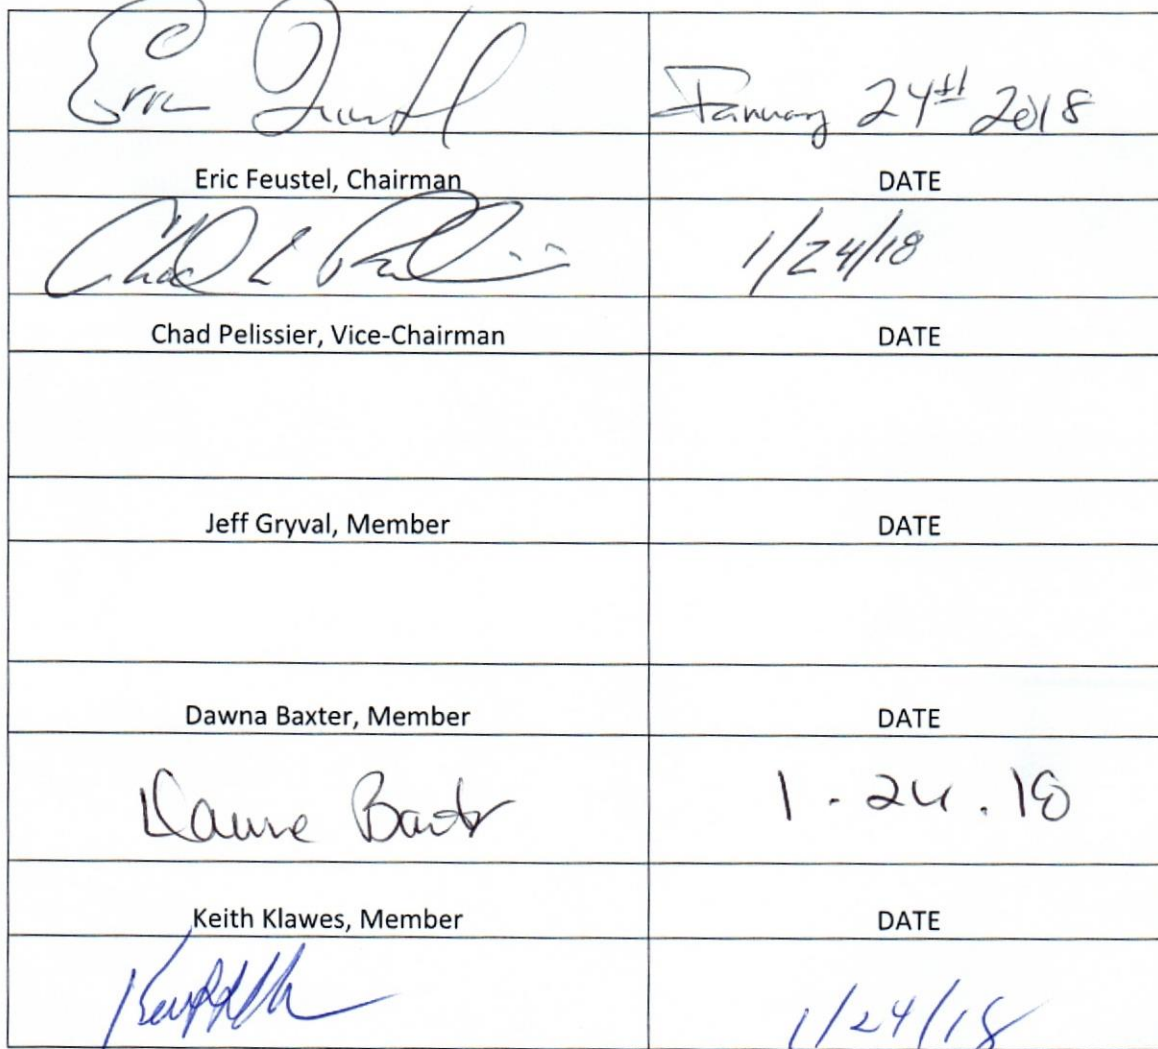 Eric Feustel January 24th 2018
Eric Feustel, Chairman DATE
Chad L Pelissier 1/24/18
Chad Pelissier, Vice-Chairman DATE
Jeff Gryval, Member DATE
Dawna Baxter, Member DATE
Baxter 1.24.18
Keith Klawes, Member DATE
1/24/18